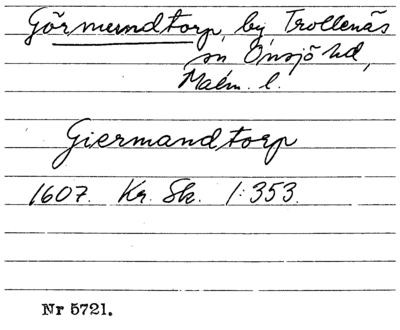 Görmundtorp, by, Trollenäs
sn Onsjö hd,
Malm. l.
Giermandtorp
1607. Kr. Sk. 1:353.
Nr 5721.